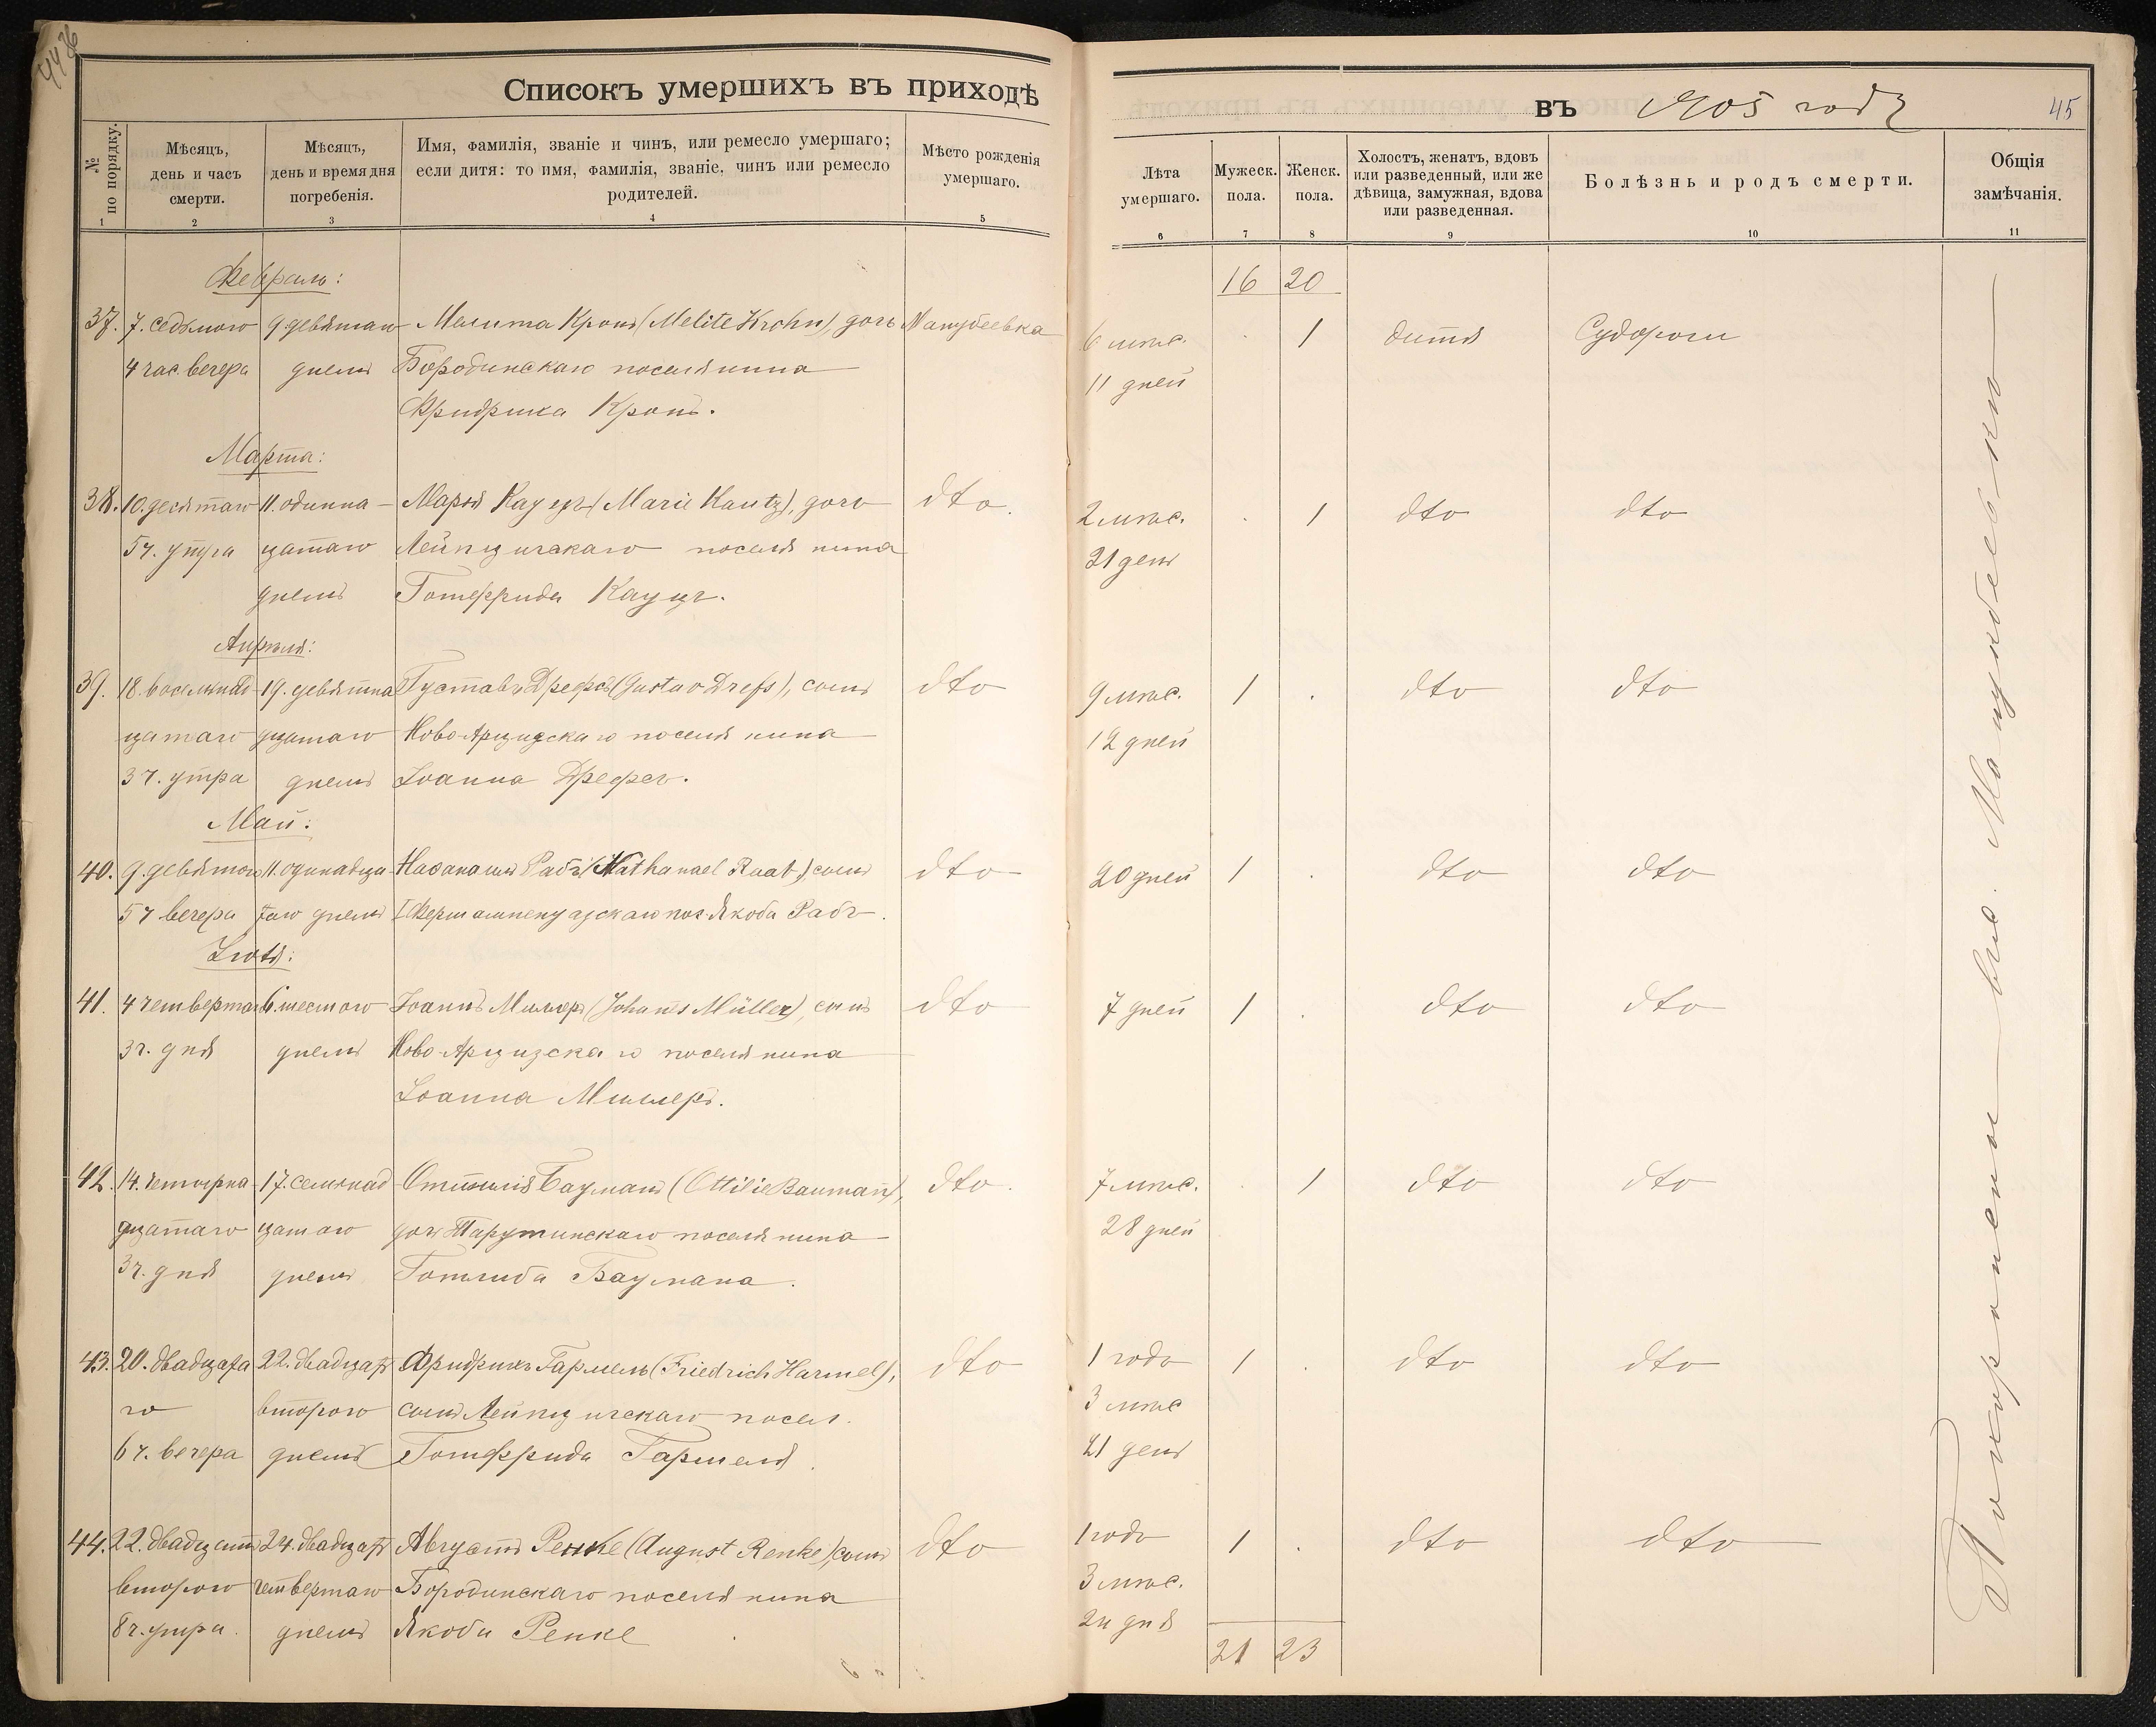 4476
Списокъ умершихъ въ приходѣ
№ по порядку.
Мѣсяцъ, день и часъ смерти.
Мѣсяцъ, день и время дня погребенія.
Имя, фамилія, званіе и чинъ, или ремесло умершаго;
если дитя: то имя, фамилія, званіе, чинъ или ремесло
родителей.
Мѣсто рожденія умершаго.
1 2 3 4 5
Февраль:
37. 7. седьмого 9 девятаго Мелита Кронъ (Melite Krohn), дочь Манукбеевка
4 час. вечера днемъ Бородинскаго поселянина
Фридриха Кронъ.
Марта:
38. 10. десятаго 11. одинна- Марія Кауцъ (Marie Kautz), дочь dto.
5 ч. утра цатаго Лейпцигскаго поселянина
днемъ Готфрида Кауцъ.
Апрѣля:
39. 18. восемнад- 19. девятна Густавъ Дрефсъ (Gustav Drefs), сынъ dto
цатаго дцатаго Ново Арцизскаго поселянина
3 ч. утра днемъ Іоанна Дрефсъ.
Май:
40. 9. девятого 11. одинадца Наѳанаилъ Рабъ (Nathanael Raab) сынъ dto
5 ч вечера таго днемъ I Фершампенуазскаго пос Якоба Рабъ.
Іюня:
41. 4 четвертаго 6. шестого Іоаннъ Миллеръ (Johanes Müller), сынъ dto
3 ч. дня днемъ Ново Арцизскаго поселянина
Іоанна Миллеръ.
42. 14. четырна 17. семьнад Оттилія Бауманъ (Ottilie Bauman), dto.
дцатаго цатого дочь Тарутинскаго поселянина
3 ч. дня днемъ Готлиба Баумана.
43. 20. двадцата 22. двадцать Фридрихъ Гармель (Friedrich Harmel), dto
го второго сынъ Лейпцигскаго посел.
6 ч. вечера днемъ Готфрида Гармеля.
44. 22. двадцать 24. двадцать Августъ Ренке (August Renke), сынъ dto
второго четвертаго Бородинскаго поселянина
8 ч. утра. днемъ Якоба Ренке
въ 1905 году
45
Лѣта умершаго.
Мужеск. пола.
Женск. пола.
Холостъ, женатъ, вдовъ
или разведенный, или же
дѣвица, замужная, вдова
или разведенная.
Болѣзнь и родъ смерти.
Общія замѣчанія.
6 7 8 9 10 11
16 20
6 мѣс. . 1 дитя Судороги
11 дней
2 мѣс. . 1 dto dto
21 день
9 мѣс. 1 . dto dto
12 дней
20 дней 1 . dto dto
7 дней 1 . dto dto
7 мѣс. . 1 dto dto
28 дней
1 годъ 1 . dto dto
3 мѣс
21 день
1 годъ 1 . dto dto
3 мѣс.
24 дня
21 23
Похоронены въ с. Манукбеевкѣ